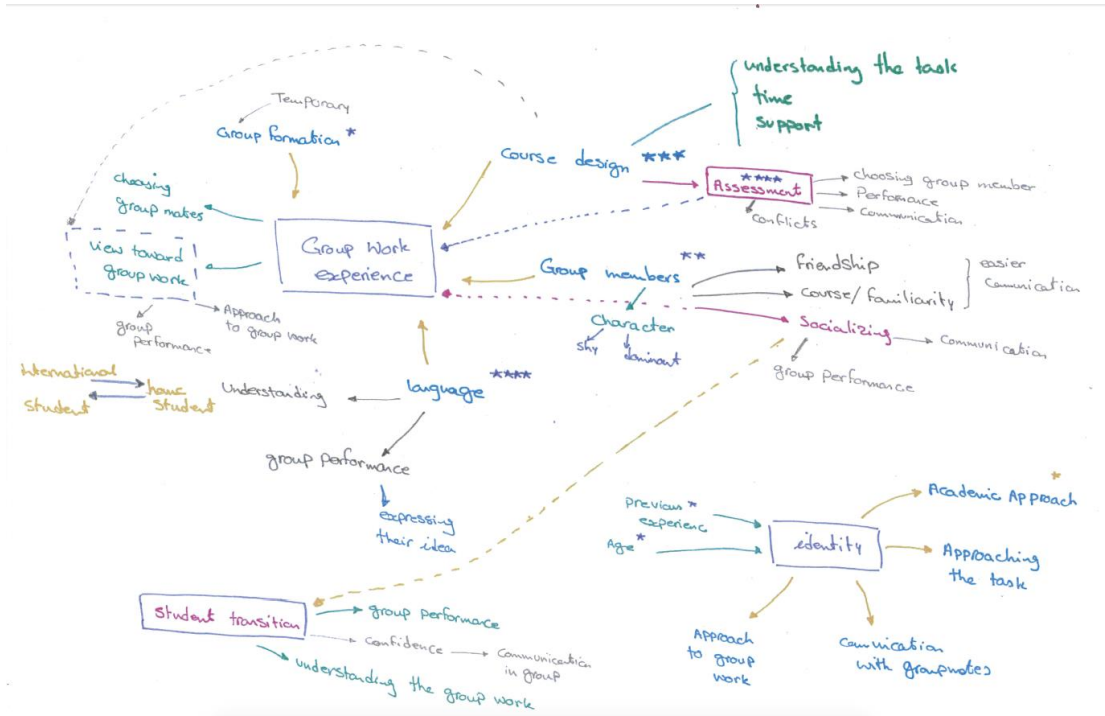 understanding the task
time
support
Temporary
Group formation *
Course design ***
****
Assessment
choosing group member
Performance
Communication
Conflicts
choosing
group makes
Group Work
experience
view toward
group work
group
performance
Approach
to group work
Group members **
friendship
course/familiarity
easier
Comunication
Socializing
Communication
group performance
Character
shy
dominant
International
Student
home
Student
Understanding
language ****
group performance
expressing
their idea
Previous *
experienc
Age *
identity
*
Academic Approach
Approaching
the task
Approach
to group
work
Comunication
with groupmates
Student transition
group performance
Confidence
Communication
in group
understanding the group work